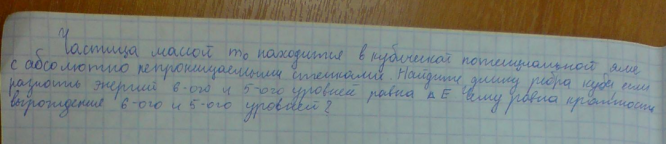 Частица массой m₀ находится в кубической потенциальной яме
с абсолютно непроницаемыми стенками. Найдите длину ребра куба, если
разность энергий 6-ого и 5-ого уровней равна ΔE. Чему равна кратность
вырождения 6-ого и 5-ого уровней?